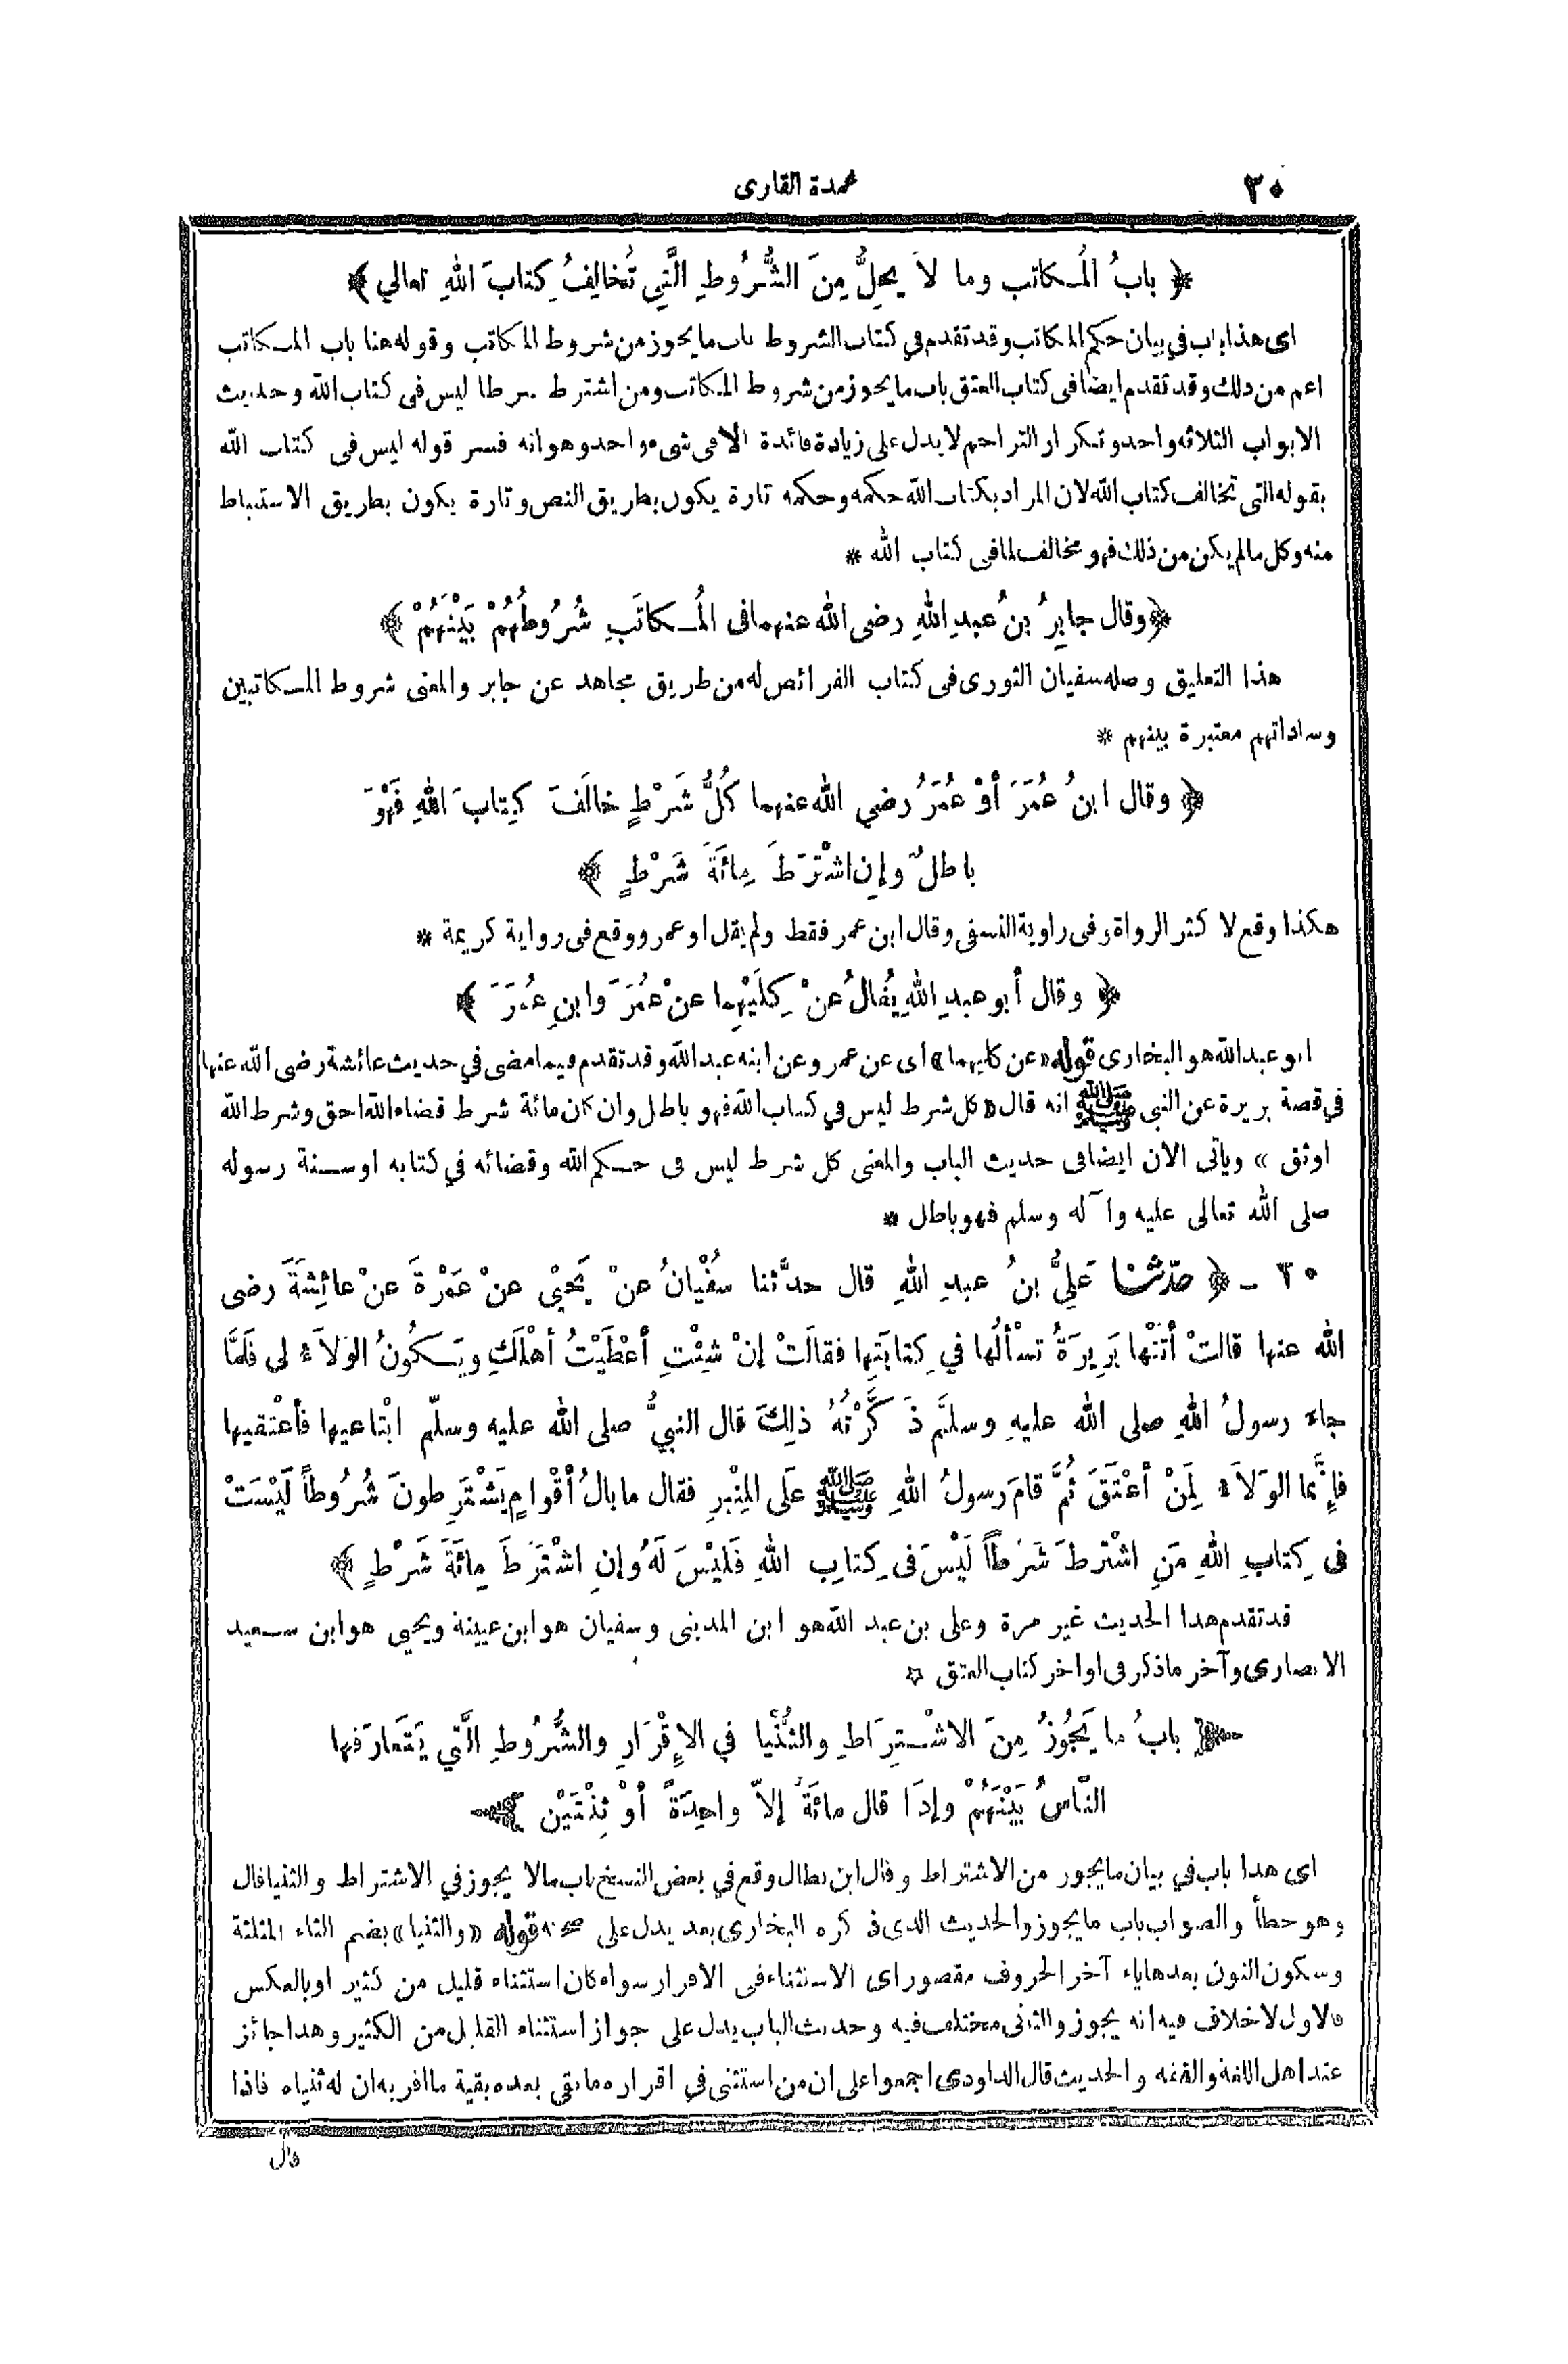 ٢٠
عمدة القارى
﴿ بابُ المُـكاتب وما لاَ يحِلُّ مِنَ الشُّرُوطِ الَّتِي تُخالِفُ كِتابَ اللهِ تعالي ﴾
اى هذا باب في بيان حكم المكاتب وقد تقدم في كتاب الشروط باب ما يجوز من شروط المكاتب وقوله هنا باب المـكاتب
اعم من ذلك وقد تقدم ايضا فى كتاب العتق باب ما يجوز من شروط المكاتب ومن اشترط شرطا ليس فى كتاب الله وحديث
الابواب الثلاثه واحد وتكرار التراجم لا يدل على زيادة فائدة الا فى شىء واحد وهو انه فسر قوله ليس فى كتاب الله
بقوله التى تخالف كتاب الله لان المراد بكتاب الله حكمه وحكمه تارة يكون بطريق النص وتارة يكون بطريق الاستنباط
منه وكل ما لم يكن من ذلك فهو مخالف لما فى كتاب الله *
﴿وقال جابِرُ بنُ عبدِ اللهِ رضى الله عنهما فى المُـكاتَبِ شُرُوطُهُمْ بَيْنَهُمْ ﴾
هذا التعليق وصله سفيان الثورى فى كتاب الفرائض له من طريق مجاهد عن جابر والمعنى شروط المـكاتبين
وساداتهم معتبرة بينهم *
﴿ وقال ابنُ عُمَرَ أوْ عُمَرُ رضي الله عنهما كُلُّ شَرْطٍ خالَفَ كِتابَ اللهِ فَهْوَ
باطلٌ وإن اشْتَرَطَ مِائَةَ شَرْطٍ ﴾
هكذا وقع لا كثر الرواة وفى راوية النسفى وقال ابن عمر فقط ولم يقل او عمر ووقع فى رواية كريمة *
﴿ وقال أبو عبدِ اللهِ يُقالُ عنْ كِلَيْهِما عنْ عُمَرَ وابنِ عُمَرَ ﴾
ابو عبد الله هو البخارى قوله «عن كليهما» اى عن عمر وعن ابنه عبد الله وقد تقدم فيما مضى في حديث عائشة رضى الله عنها
في قصة بريرة عن النبي ﷺ انه قال «كل شرط ليس في كتاب الله فهو باطل وان كان مائة شرط قضاء الله احق وشرط الله
اوثق » وياتى الان ايضا فى حديث الباب والمعنى كل شرط ليس فى حـكم الله وقضائه في كتابه او سـنة رسوله
صلى الله تعالى عليه وآله وسلم فهو باطل *
٢٠ ـ ﴿ حدّثنا عَلِيُّ بنُ عبدِ اللهِ قال حدَّثنا سُفْيانُ عنْ يَحْيىٰ عنْ عَمْرَةَ عنْ عائِشَةَ رضى
الله عنها قالتْ أتَتْها بَرِيرَةُ تسْألُها في كِتابَتِها فقالَتْ إنْ شِئْتِ أعْطَيْتُ أهْلَكِ ويَـكُونُ الوَلاَءُ لى فَلَمَّا
جاءَ رسولُ اللهِ صلى الله عليهِ وسلَّمَ ذَكَّرْتُهُ ذلِكَ قال النبيُّ صلى الله عليه وسلّم ابْتاعيها فأعْتقيها
فإنَّما الوَلاَءُ لِمَنْ أعْتَقَ ثُمَّ قامَ رسولُ اللهِ ﷺ عَلَى المِنْبرِ فقال ما بالُ أقْوامٍ يَشْتَرِطونَ شُرُوطاً لَيْسَتْ
فى كِتابِ اللهِ مَنِ اشْتَرطَ شَرَطاً لَيْسَ فى كِتابِ اللهِ فَلَيْسَ لَهُ وإنِ اشْتَرَطَ مِائَةَ شَرْطٍ ﴾
قد تقدم هذا الحديث غير مرة وعلى بن عبد الله هو ابن المدينى وسفيان هو ابن عيينة ويحيى هو ابن سـعيد
الانصارى وآخر ما ذكر فى اواخر كتاب العتق ☆
﴿ بابُ ما يَجُوزُ مِنَ الاشْـتِرَاطِ والثُّنْيا في الإِقْرَارِ والشُّرُوطِ الَّتي يَتَعارَفها
النّاسُ بَيْنَهُمْ وإذَا قال مائَةٌ إلاّ واحِدَةً أوْ ثِنْتَيْن ﴾
اى هذا باب في بيان ما يجوز من الاشتراط وقال ابن بطال وقع في بعض النسخ باب مالا يجوز في الاشتراط والثنيا قال
وهو خطأ والصواب باب ما يجوز والحديث الذى ذكره البخارى بعد يدل على صحته قوله «والثنيا» بضم الثاء المثلثة
وسكون النون بعدها ياء آخر الحروف مقصور اى الاستثناء فى الاقرار سواء كان استثناء قليل من كثير او بالعكس
فالاول لا خلاف فيه انه يجوز والثانى مختلف فيه وحديث الباب يدل على جواز استثناء القليل من الكثير وهذا جائز
عند اهل اللغة والفقه والحديث قال الداودى اجمعوا على ان من استثنى في اقراره ما بقى بعده بقية ما اقر به ان له ثنياه فاذا
قال